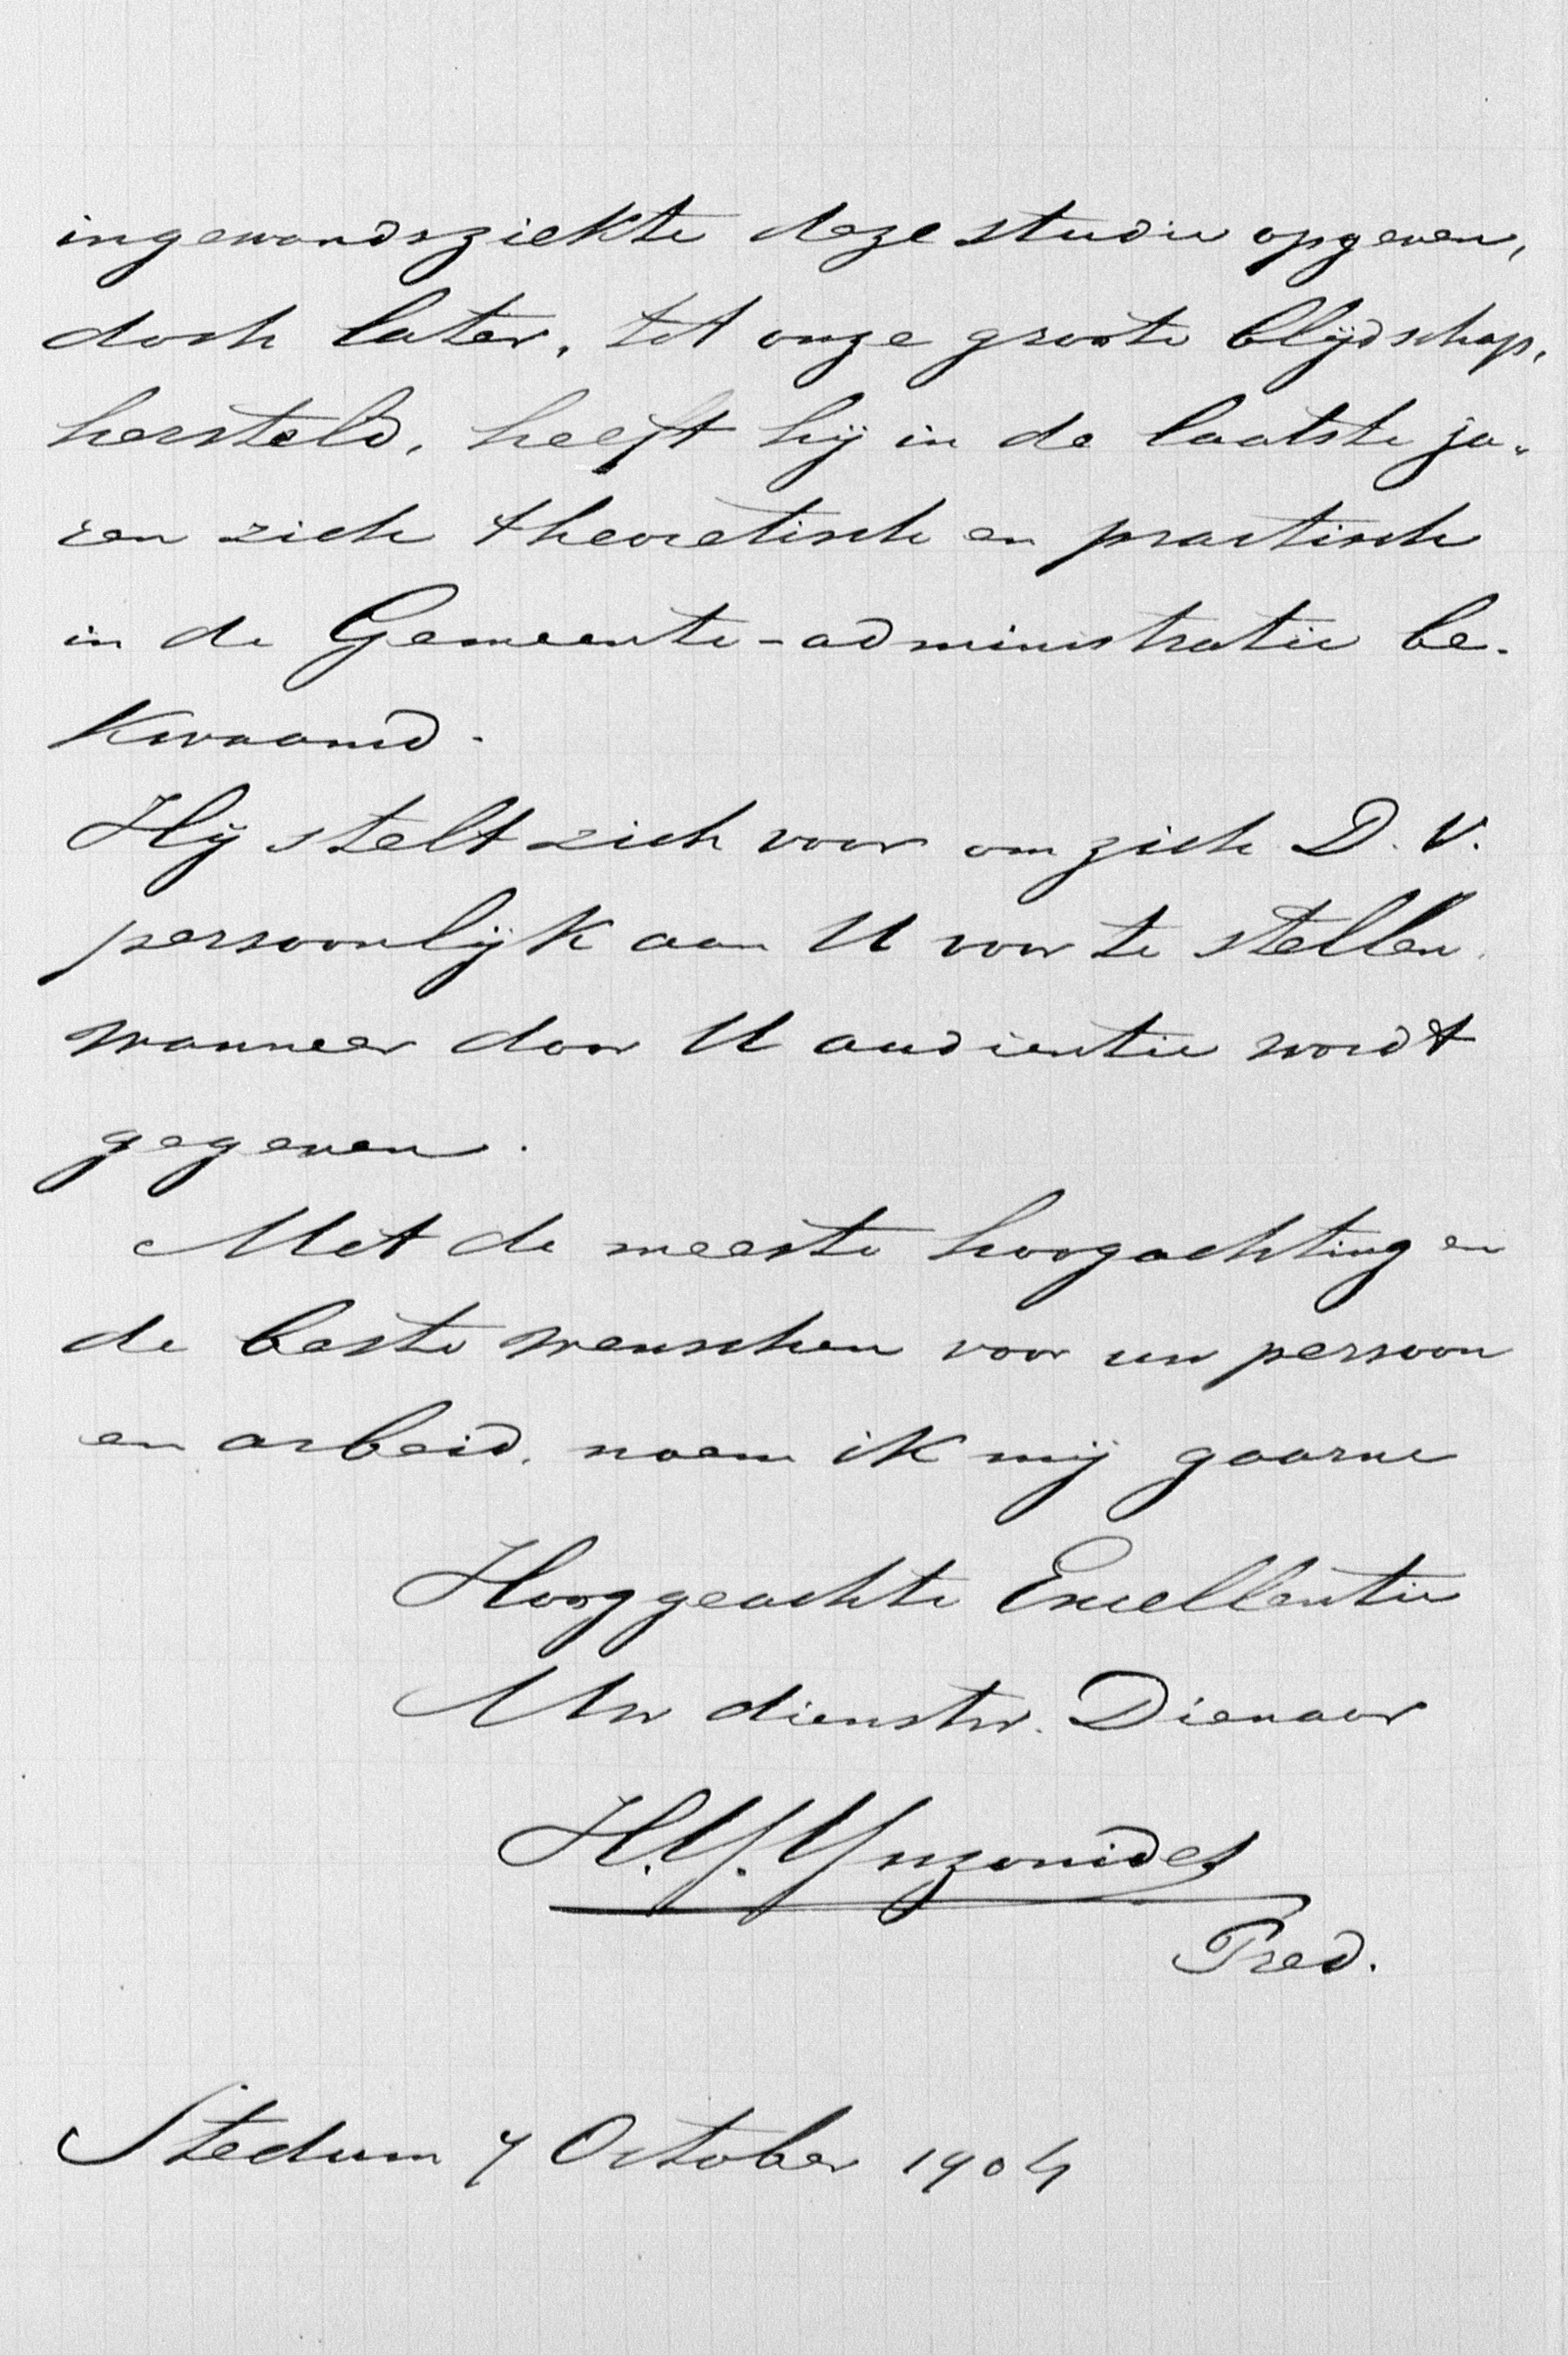 ingewandsziekte deze studie opgeven,
doch later, tot onze groote blijdschap,
hersteld, heeft hij in de laatste ja-
ren zich theoretisch en practisch
in de Gemeente-administratie be-
kwaamd.
Hij stelt zich voor om zich D.V.
persoonlijk aan U voor te stellen,
wanneer door U audientie wordt
gegeven.
Met de meeste hoogachting en
de beste wenschen voor uw persoon
en arbeid, noem ik mij gaarne
Hooggeachte Excellentie
Uw dienstw. Dienaar
H.Y. Ynzonides
Pred.
Stedum 7 October 1904